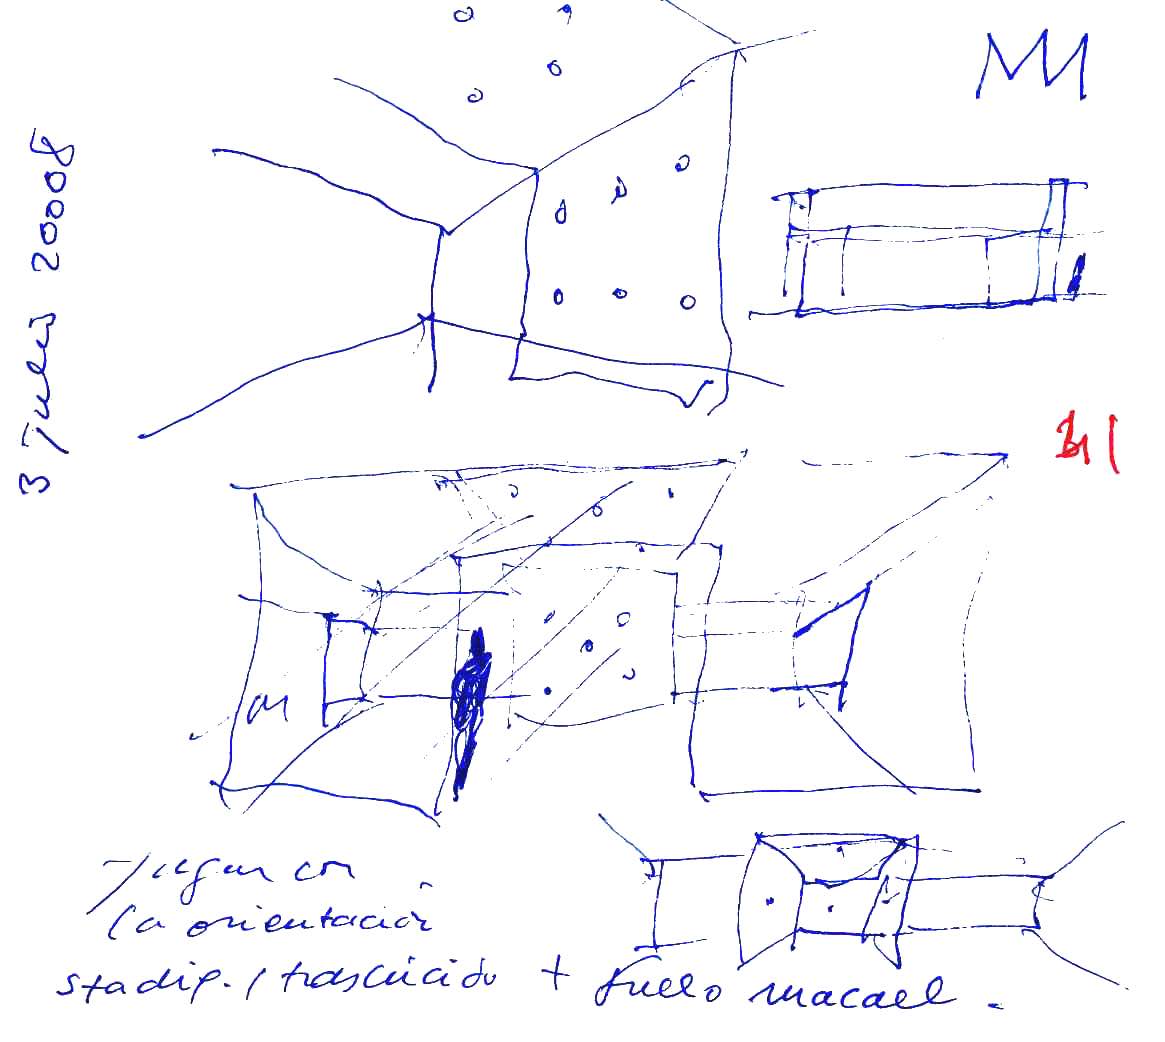 3 Julio 20008
Jugar con
la orientación
stadip. / traslúcido + suelo macael.